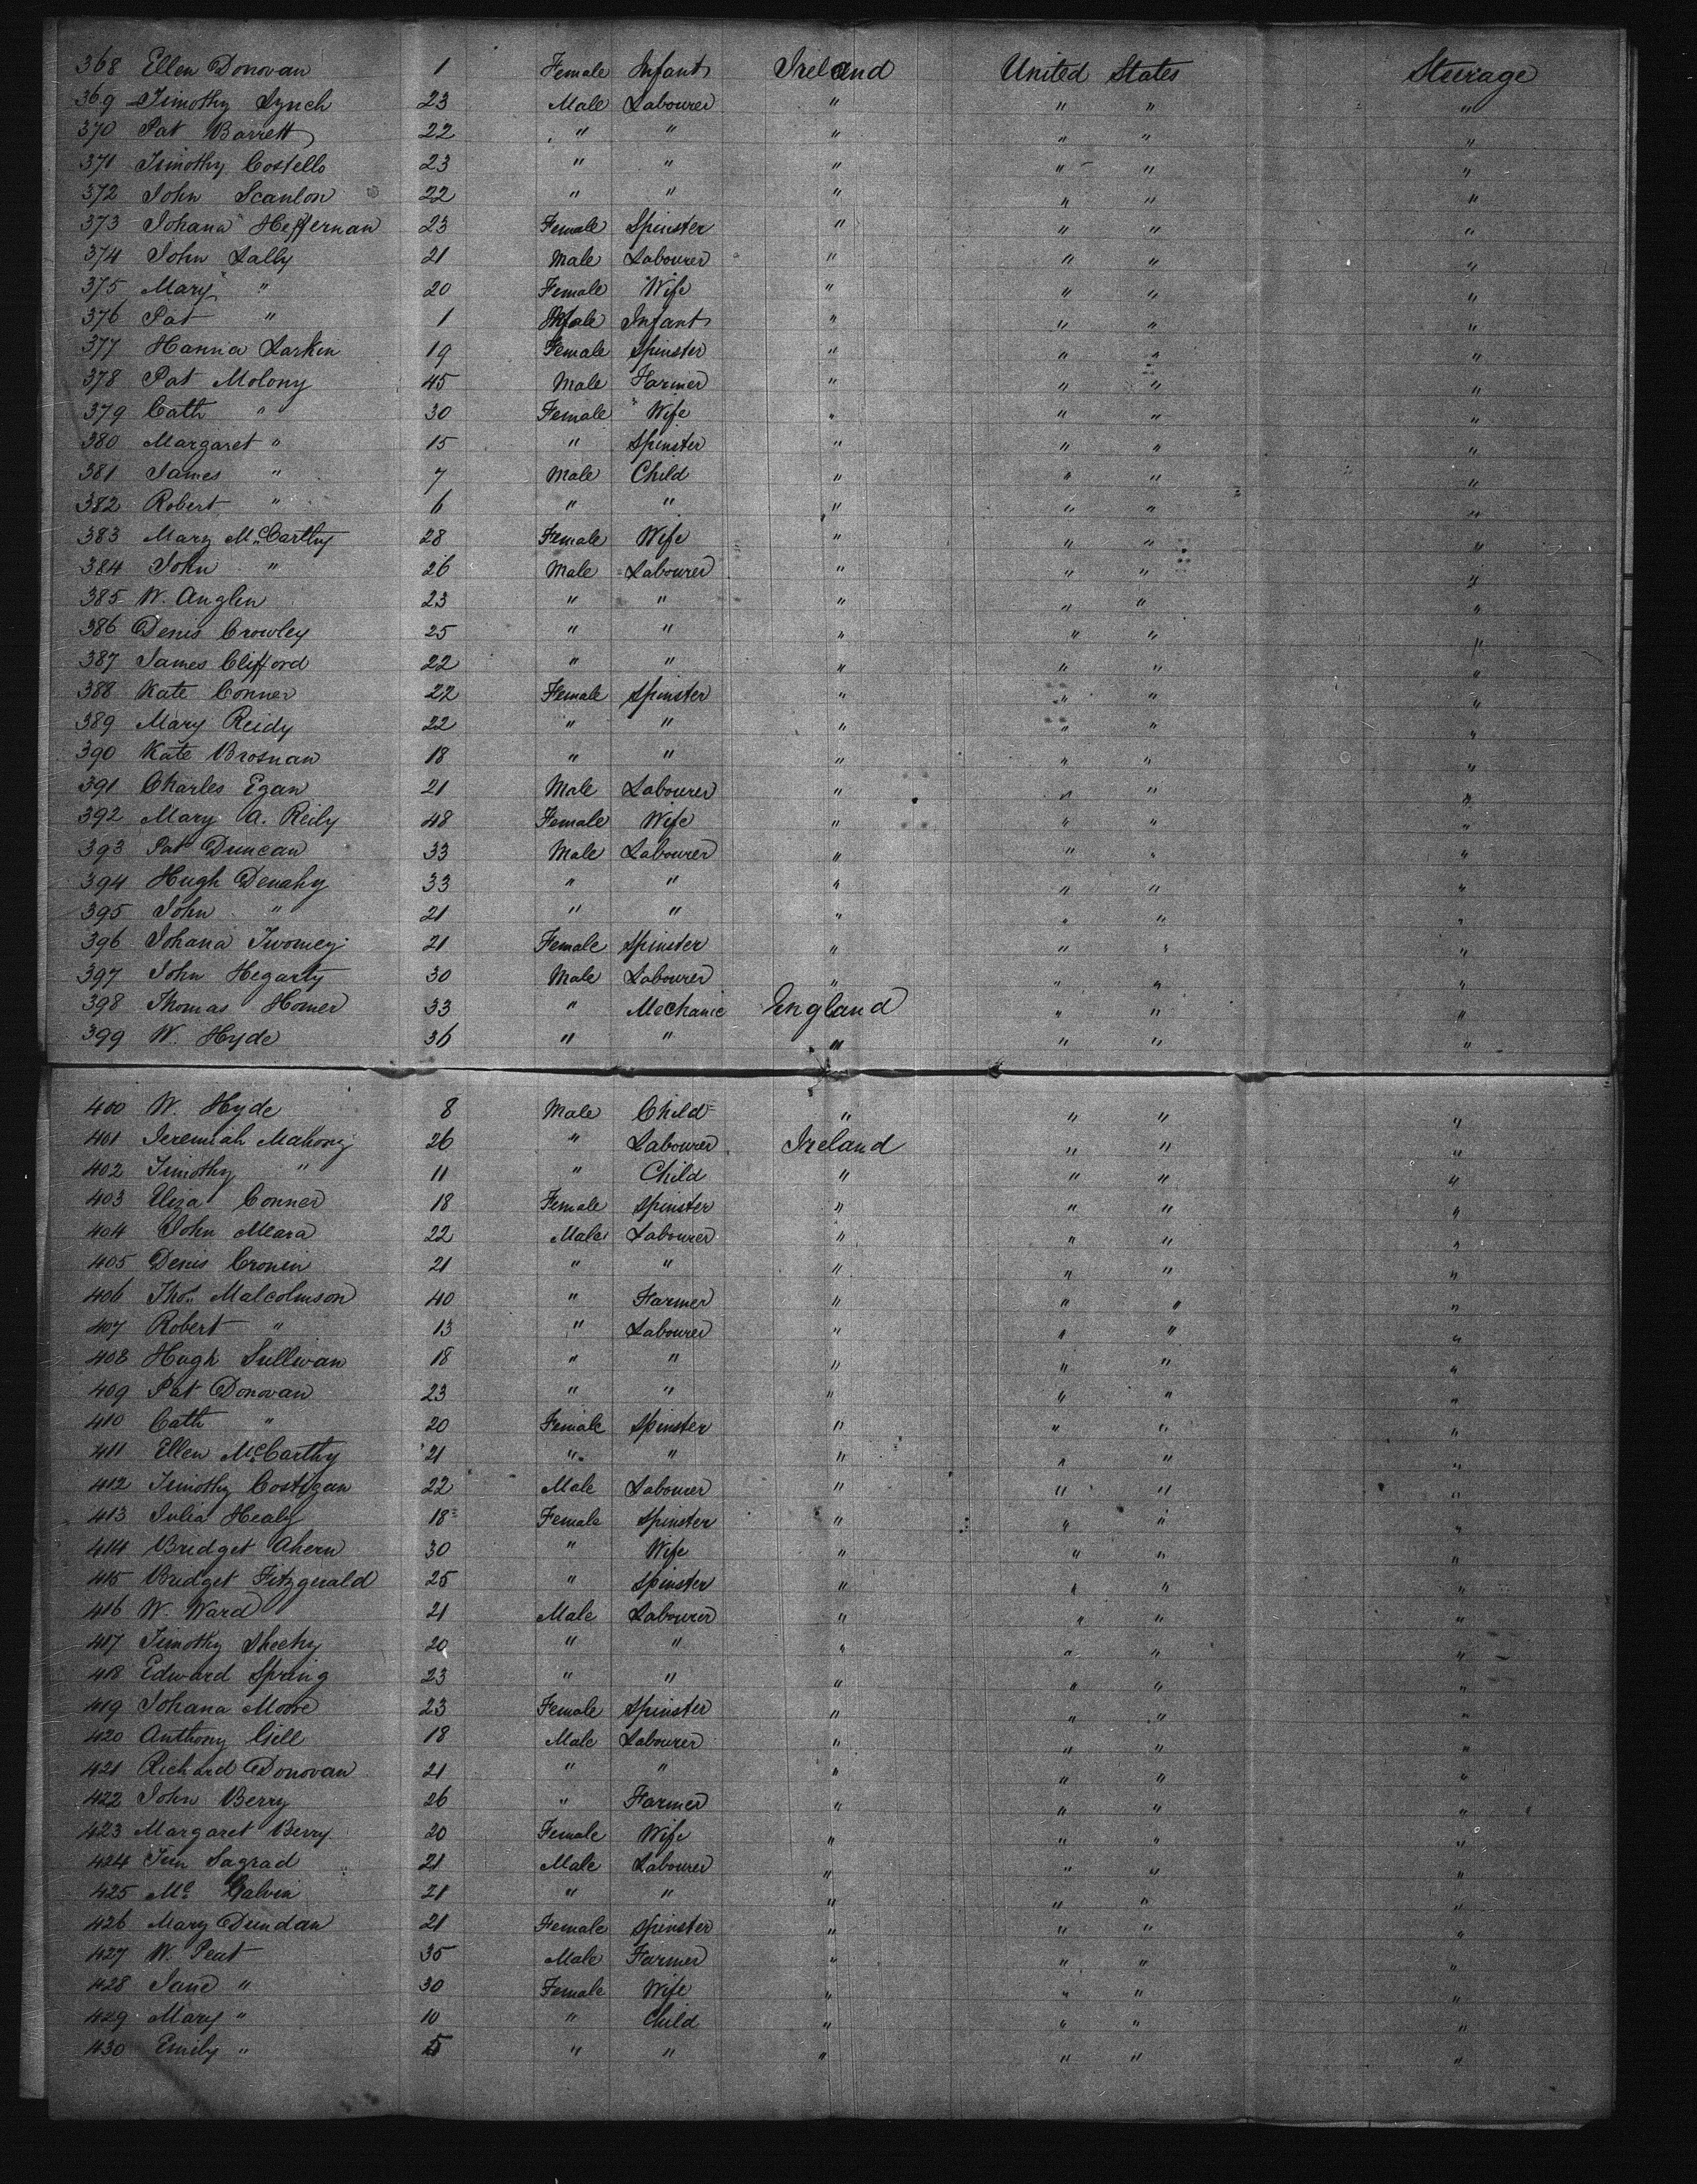 368 Ellen Donovan 1 Female Infant Ireland United States Steerage
369 Timothy Lynch 23 Male Labourer " " " "
370 Pat Barrett 22 " " " " " "
371 Timothy Costello 23 " " " " " "
372 John Scanlon 22 " " " " " "
373 Johana Heffernan 23 Female Spinster " " " "
374 John Lally 21 Male Labourer " " " "
375 Mary " 20 Female Wife " " " "
376 Pat " 1 Male Infant " " " "
377 Hanna Larkin 19 Female Spinster " " " "
378 Pat Molony 45 Male Farmer " " " "
379 Cath " 30 Female Wife " " " "
380 Margaret " 15 " Spinster " " " "
381 James " 7 Male Child " " " "
382 Robert " 6 " " " " " "
383 Mary McCarthy 28 Female Wife " " " "
384 John " 26 Male Labourer " " " "
385 W. Anglin 23 " " " " " "
386 Denis Crowley 25 " " " " " "
387 James Clifford 22 " " " " " "
388 Kate Conner 22 Female Spinster " " " "
389 Mary Reidy 22 " " " " " "
390 Kate Brosnan 18 " " " " " "
391 Charles Egan 21 Male Labourer " " " "
392 Mary A. Reily 48 Female Wife " " " "
393 Pat Duncan 33 Male Labourer " " " "
394 Hugh Denahy 33 " " " " " "
395 John " 21 " " " " " "
396 Johana Twomey 21 Female Spinster " " " "
397 John Hegarty 30 Male Labourer " " " "
398 Thomas Homer 33 " Mechanic England " " "
399 W. Hyde 36 " " " " " "
400 W. Hyde 8 Male Child " " " "
401 Jeremiah Mahony 26 " Labourer Ireland " " "
402 Timothy " 11 " Child " " " "
403 Eliza Conner 18 Female Spinster " " " "
404 John Meara 22 Male Labourer " " " "
405 Denis Cronin 21 " " " " " "
406 Thos. Malcolmson 40 " Farmer " " " "
407 Robert " 13 " Labourer " " " "
408 Hugh Sullivan 18 " " " " " "
409 Pat Donovan 23 " " " " " "
410 Cath " 20 Female Spinster " " " "
411 Ellen McCarthy 21 " " " " " "
412 Timothy Costigan 22 Male Labourer " " " "
413 Julia Healy 18 Female Spinster " " " "
414 Bridget Ahern 30 " Wife " " " "
415 Bridget Fitzgerald 25 " Spinster " " " "
416 W. Ward 21 Male Labourer " " " "
417 Timothy Sheehy 20 " " " " " "
418 Edward Spring 23 " " " " " "
419 Johana Moore 23 Female Spinster " " " "
420 Anthony Gill 18 Male Labourer " " " "
421 Richard Donovan 21 " " " " " "
422 John Berry 26 " Farmer " " " "
423 Margaret Berry 20 Female Wife " " " "
424 Sagrad 21 Male Labourer " " " "
425 Mc Galvin 21 " " " " " "
426 Mary Dundan 21 Female Spinster " " " "
427 W. Peut 35 Male Farmer " " " "
428 Jane " 30 Female Wife " " " "
429 Mary " 10 " Child " " " "
430 Emily " 5 " " " " " "